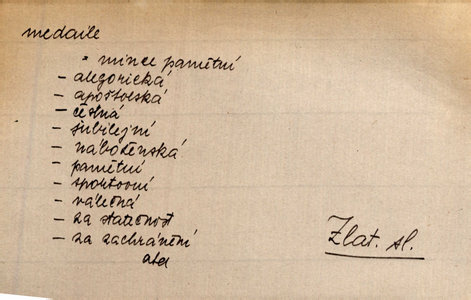 medaile
* mince pamětní
– alegorická
– apoštolská
– čestná
– jubilejní
– náboženská
– pamětní
– sportovní
– válečná
– za statečnost
– za zachránění
atd
Zlat. sl.